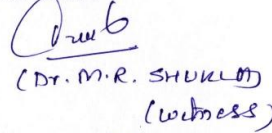 (Dr. M.R. SHUKLA)
(witness)